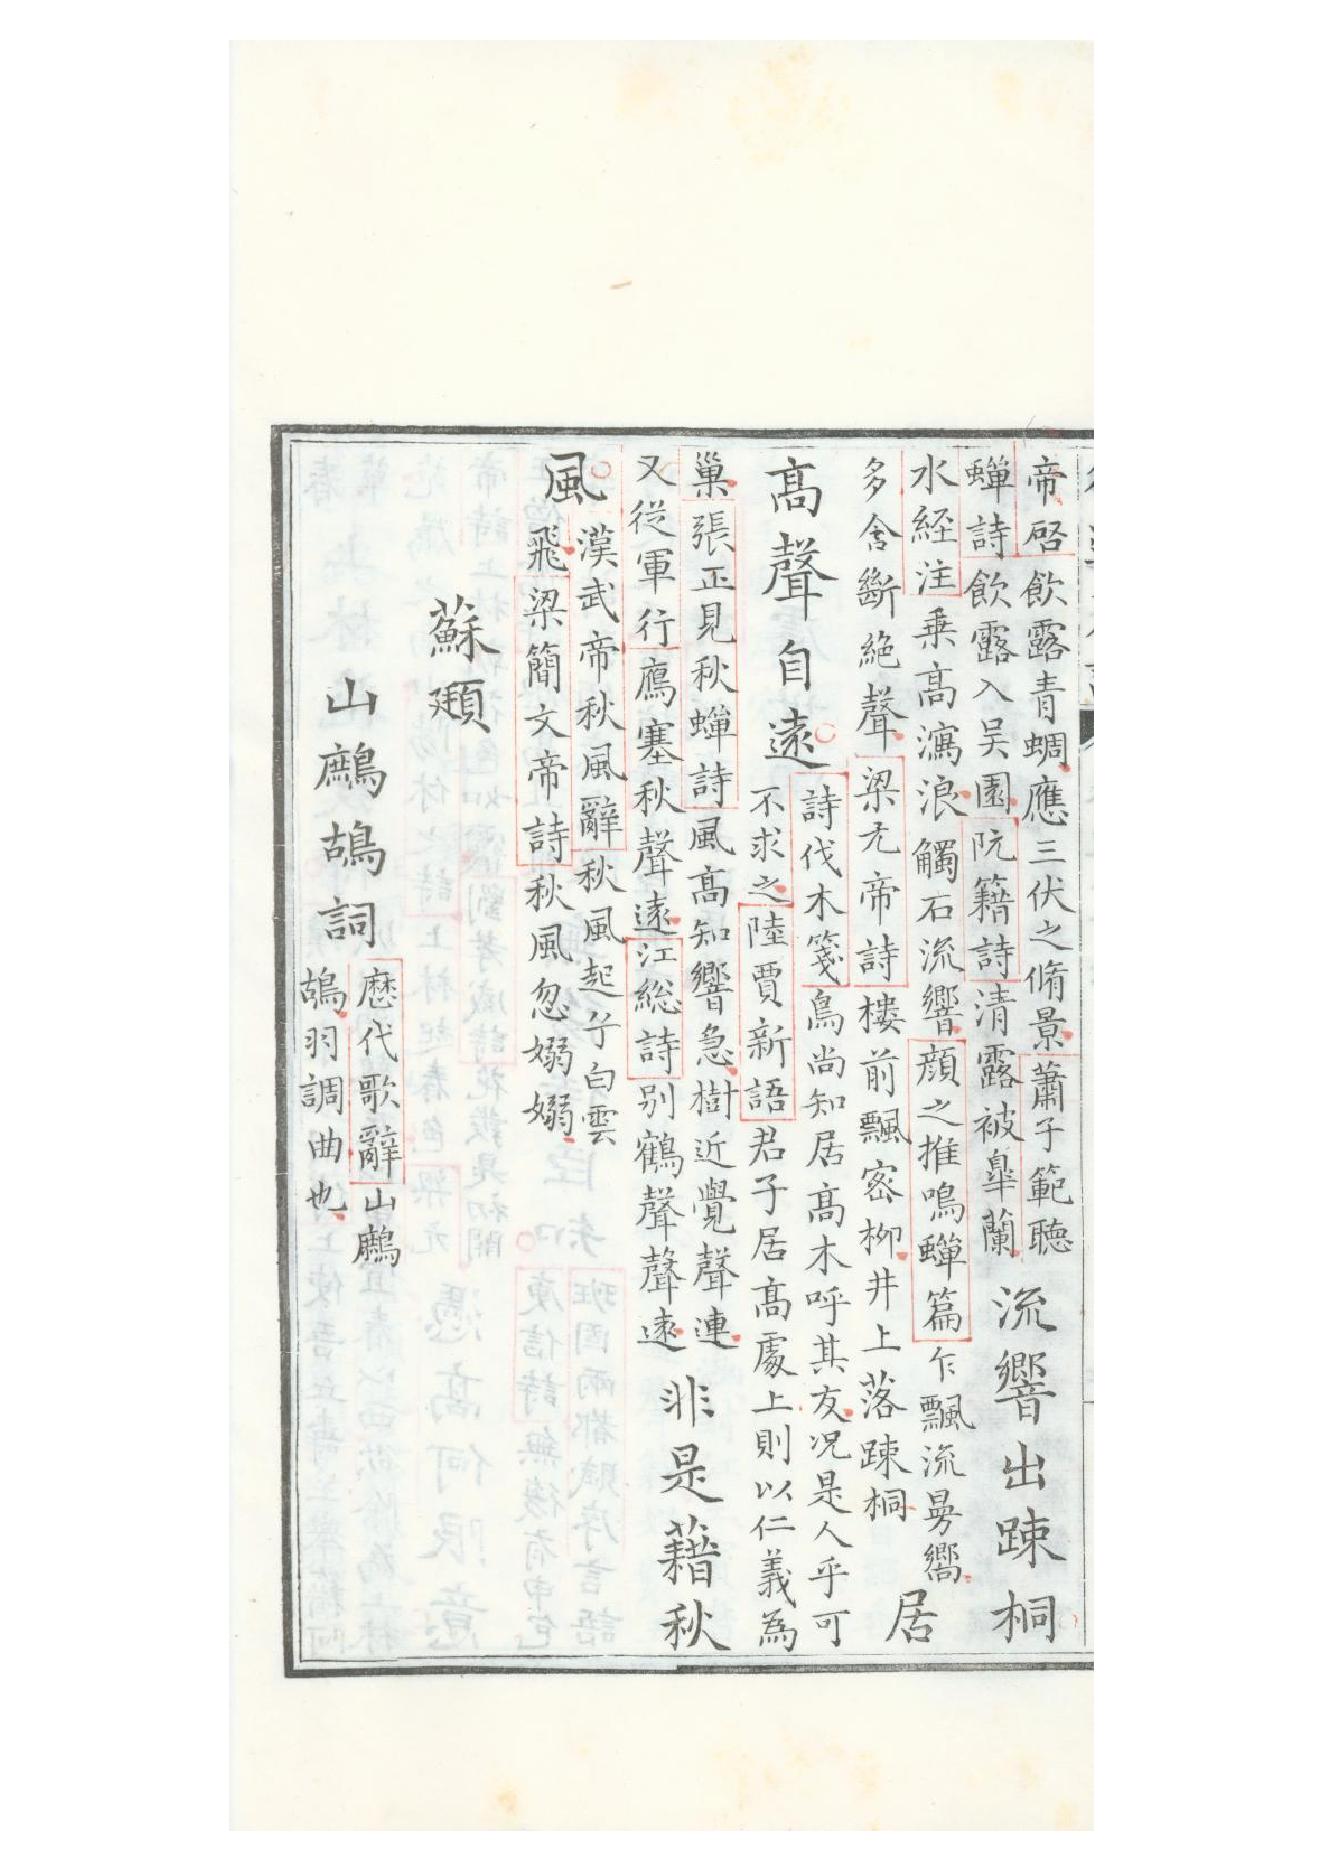 帝啓飲露青蜩應三伏之脩景蕭子範聽
蟬詩飲露入吴園阮籍詩清露被臯蘭
流響出踈桐
水経注乗高瀉浪觸石流響顔之推鳴蟬篇乍飄流曼嚮
多含斷絶聲梁元帝詩樓前飄密柳井上落踈桐
居
高聲自遠
詩伐木箋鳥尚知居高木呼其友况是人乎可
不求之陸賈新語君子居高處上則以仁義為
巢張正見秋蟬詩風高知響急樹近覺聲連
又從軍行鴈塞秋聲遠江総詩别鶴聲聲遠
非是藉秋
風
漢武帝秋風辭秋風起兮白雲
飛梁簡文帝詩秋風忽嫋嫋
蘇頲
山鷓鴣詞
歴代歌辭山鷓
鴣羽調曲也